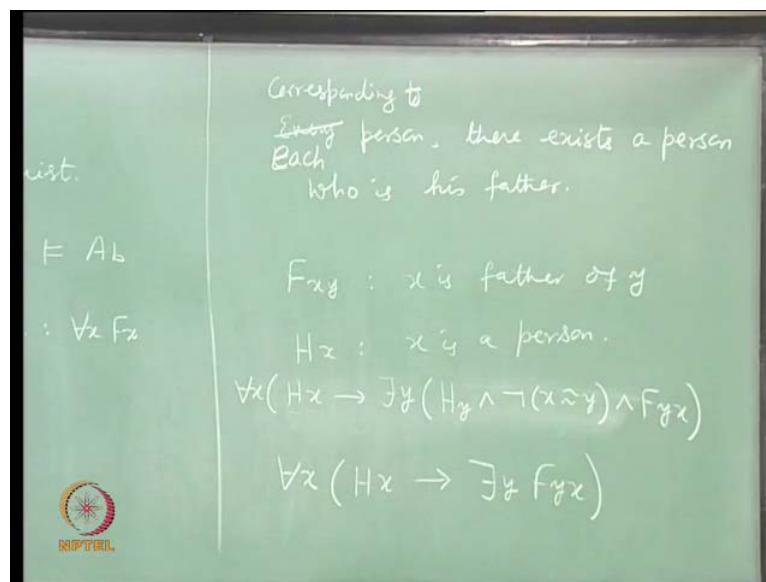 ist.
⊨ Ab
: ∀x Fx
Corresponding to
Every person, there exists a person
Each
who is his father.
Fxy : x is father of y
Hx : x is a person.
∀x(Hx → ∃y(Hy ∧ ¬(x≈y) ∧ Fyx)
∀x(Hx → ∃y Fyx)
NPTEL